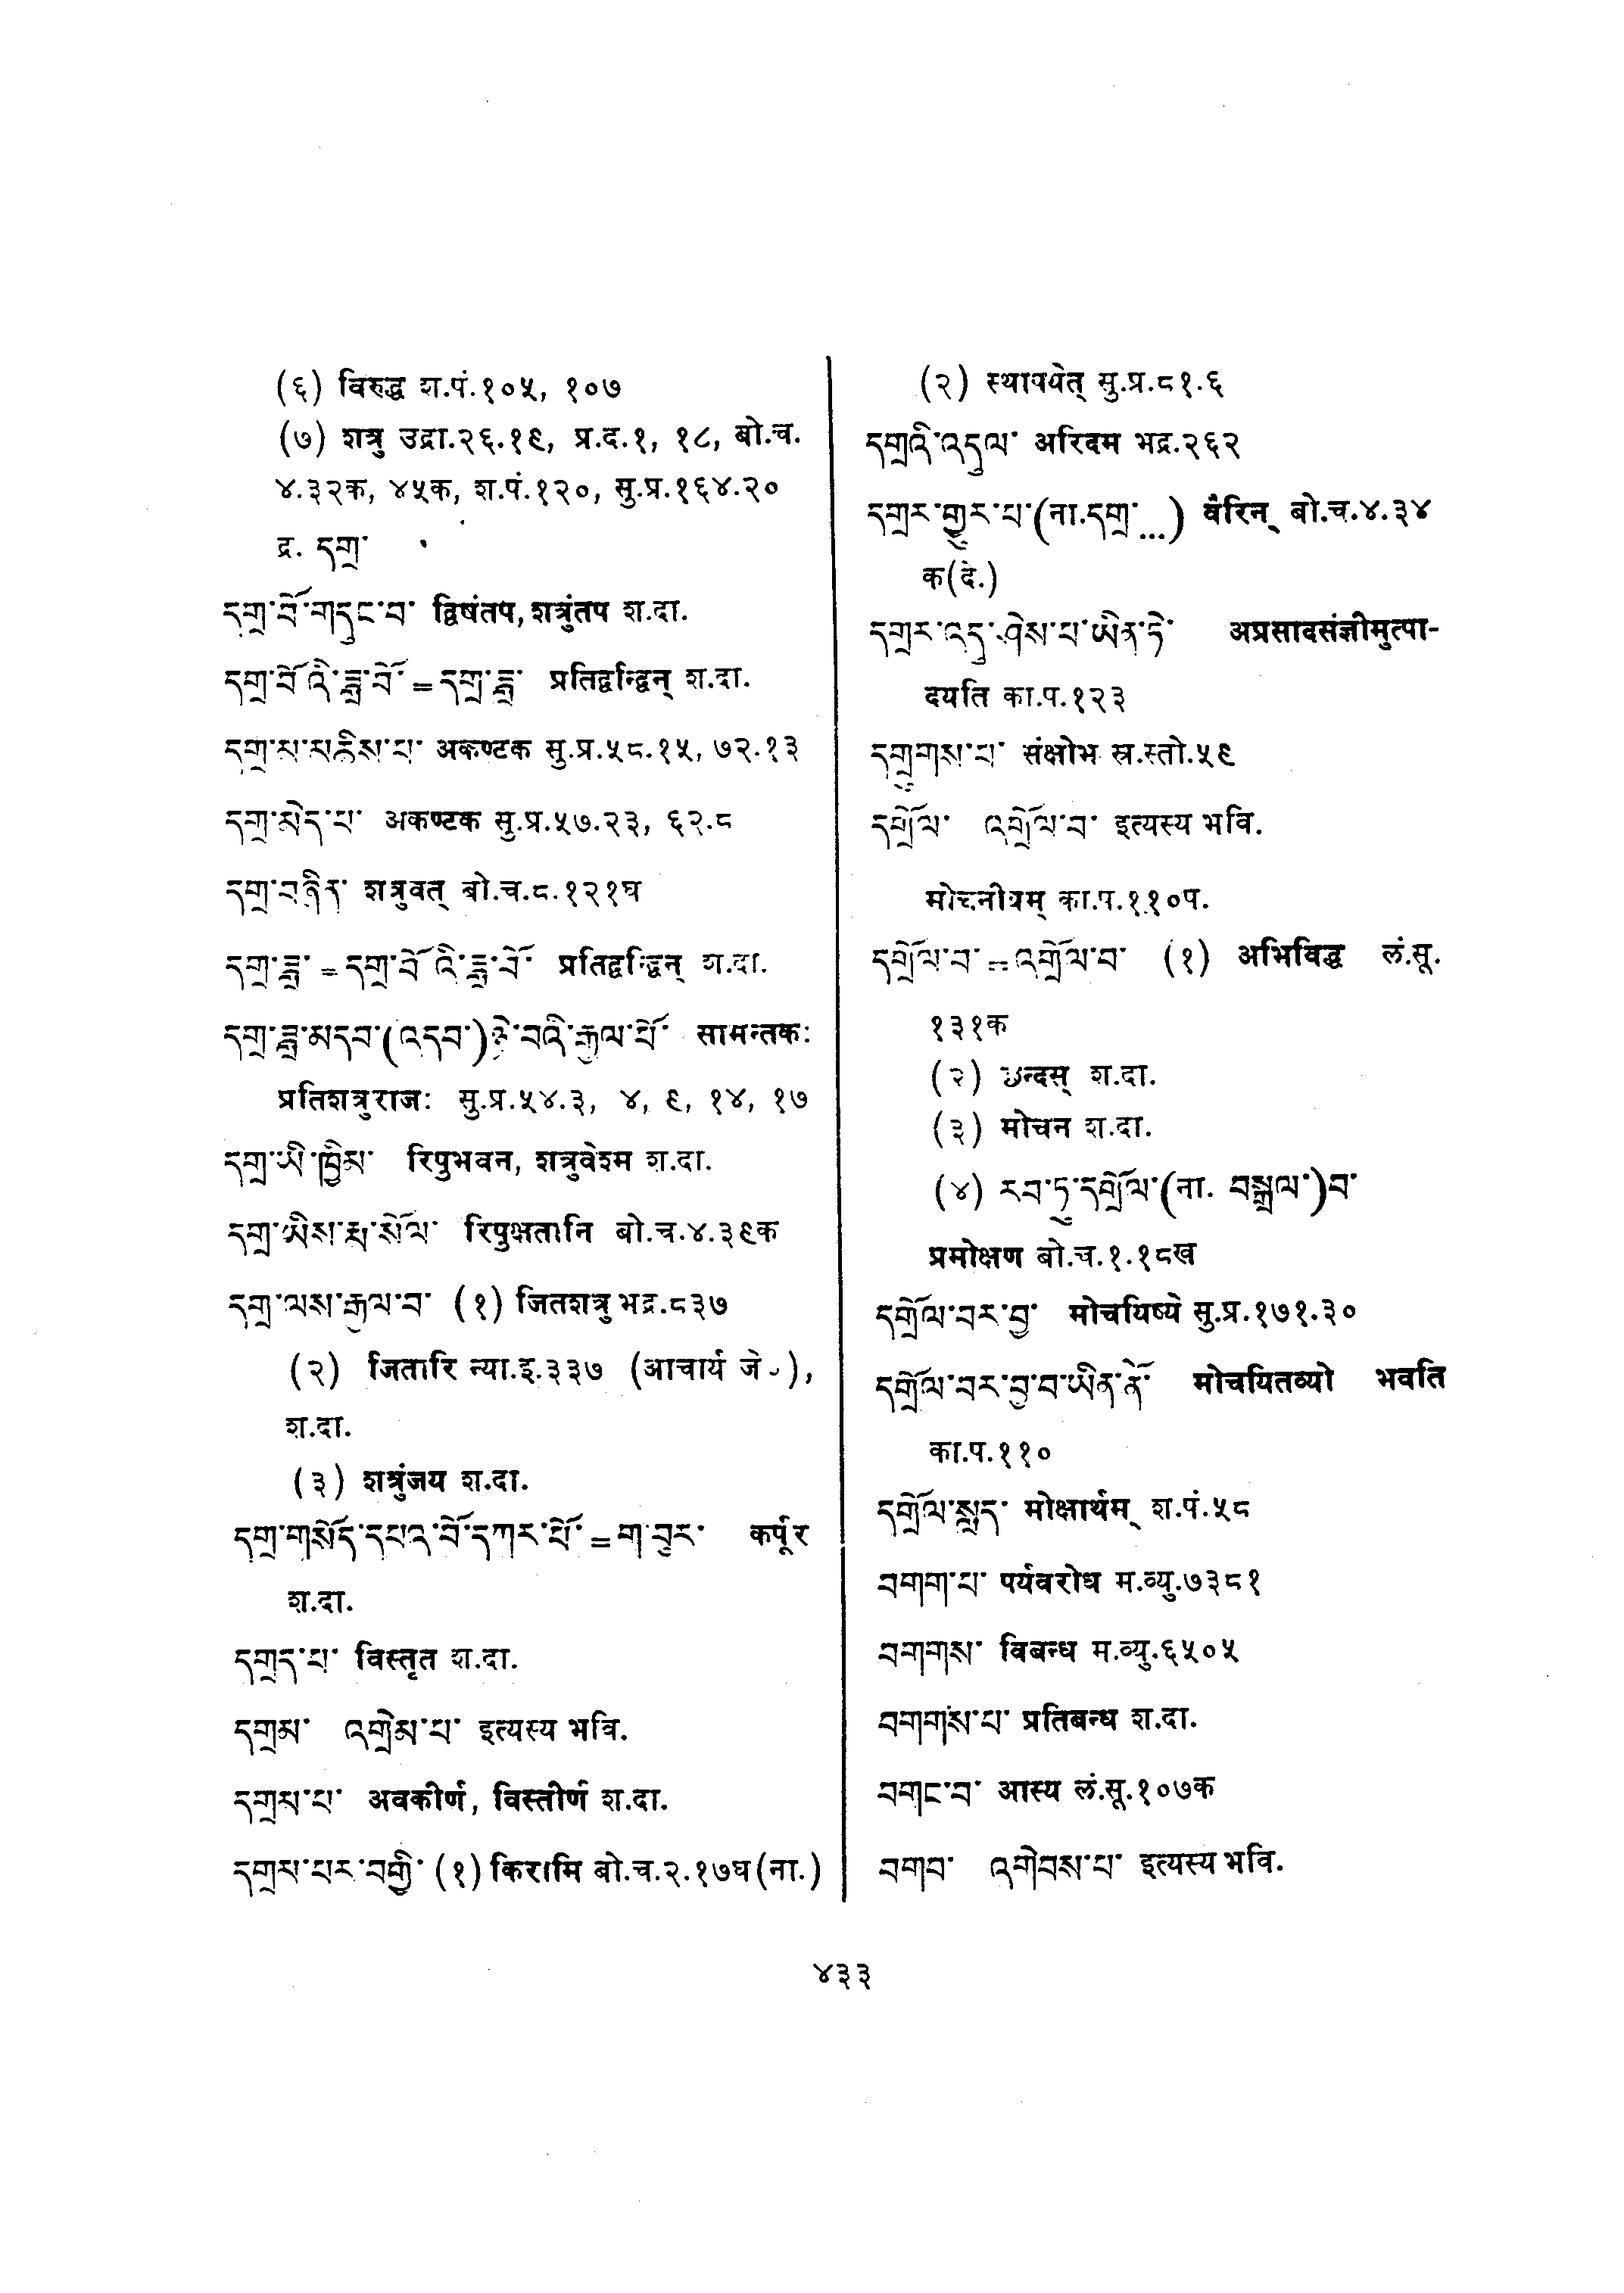 (६) विरुद्ध श.पं.१०५, १०७
(७) शत्रु उद्रा.२६.१९, प्र.द.१, १८, बो.च.
४.३२क, ४५क, श.पं.१२०, सु.प्र.१६४.२०
द्र. དགྲ་
དགྲ་བོ་གདུང་བ་ द्विषंतप, शत्रुंतप श.दा.
དགྲ་བོའི་ཟླ་བོ་=དགྲ་ཟླ་ प्रतिद्वन्द्विन् श.दा.
དགྲ་མ་མཆིས་པ་ अकण्टक सु.प्र.५८.१५, ७२.१३
དགྲ་མེད་པ་ अकण्टक सु.प्र.५७.२३, ६२.८
དགྲ་བཞིན་ शत्रुवत् बो.च.८.१२१घ
དགྲ་ཟླ་=དགྲ་བོའི་ཟླ་བོ་ प्रतिद्वन्द्विन् श.दा.
དགྲ་ཟླ་མདབ་(འདབ་)ཉེ་བའི་རྒྱལ་པོ་ सामन्तकः
प्रतिशत्रुराजः सु.प्र.५४.३, ४, ९, १४, १७
དགྲ་ཡི་ཁྱིམ་ रिपुभवन, शत्रुवेश्म श.दा.
དགྲ་ཡིས་རྨ་སོལ་ रिपुक्षतानि बो.च.४.३९क
དགྲ་ལས་རྒྱལ་བ་ (१) जितशत्रु भद्र.८३७
(२) जितारि न्या.इ.३३७ (आचार्य जे॰),
श.दा.
(३) शत्रुंजय श.दा.
དགྲ་གསོད་དཔའ་བོ་དཀར་པོ་=ག་བུར་ कर्पूर
श.दा.
དགྲད་པ་ विस्तृत श.दा.
དགྲམ་ འགྲེམ་པ་ इत्यस्य भवि.
དགྲམ་པ་ अवकीर्ण, विस्तीर्ण श.दा.
དགྲམ་པར་བགྱི་ (१) किरामि बो.च.२.१७घ(ना.)
(२) स्थापयेत् सु.प्र.८१.६
དགྲའི་འདུལ་ अरिदम भद्र.२६२
དགྲར་གྱུར་པ་(ना.དགྲ་...) वैरिन् बो.च.४.३४
क(दे.)
དགྲར་འདུ་ཤེས་པ་ཡིན་ཏེ་ अप्रसादसंज्ञीमुत्पा-
दयति का.प.१२३
དགྲུགས་པ་ संक्षोभ स्र.स्तो.५९
དགྲོལ་ འགྲོལ་བ་ इत्यस्य भवि.
मोचनीयम् का.प.११०प.
དགྲོལ་བ་=འགྲོལ་བ་ (१) अभिविद्ध लं.सू.
१३१क
(२) छन्दस् श.दा.
(३) मोचन श.दा.
(४) རབ་ཏུ་དགྲོལ་(ना. བསྒྲལ་)བ་
प्रमोक्षण बो.च.१.१८ख
དགྲོལ་བར་བྱ་ मोचयिष्ये सु.प्र.१७१.३०
དགྲོལ་བར་བྱ་བ་ཡིན་ནོ་ मोचयितव्यो भवति
का.प.११०
དགྲོལ་སླད་ मोक्षार्थम् श.पं.५८
བགག་པ་ पर्यवरोध म.व्यु.७३८१
བགགས་ विबन्ध म.व्यु.६५०५
བགགས་པ་ प्रतिबन्ध श.दा.
བགང་བ་ आस्य लं.सू.१०७क
བགབ་ འགེབས་པ་ इत्यस्य भवि.
४३३